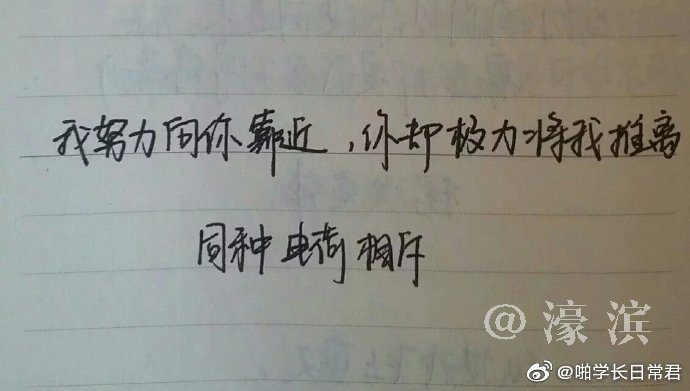 我努力向你靠近,你却极力将我推离
同种电荷相斥
@濠滨
@啪学长日常君